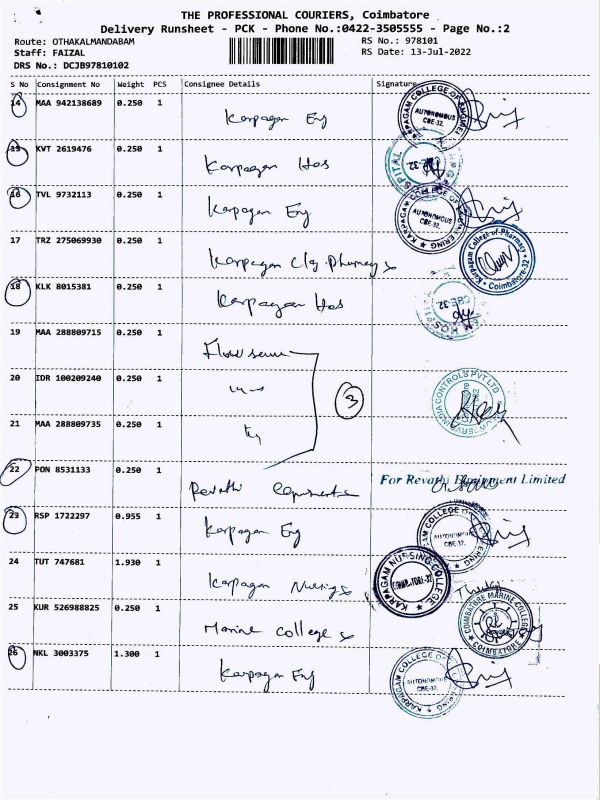 THE PROFESSIONAL COURIERS, Coimbatore
Delivery Runsheet - PCK - Phone No.:0422-3505555 - Page No.:2
Route: OTHAKALMANDABAM
RS No.: 978101
Staff: FAIZAL
RS Date: 13-Jul-2022
DRS No.: DCJB97810102
S No Consignment No Weight PCS Consignee Details Signature
14 MAA 942138689 0.250 1
Karpagam Eng
KARPAGAM COLLEGE OF ENGINEERING AUTONOMOUS CBE-32.
15 KVT 2619476 0.250 1
Karpagam Hos
16 TVL 9732113 0.250 1
Karpagam Eng
KARPAGAM COLLEGE OF ENGINEERING AUTONOMOUS CBE-32.
17 TRZ 275069930 0.250 1
Karpagam Clg Pharmacy
Karpagam College of Pharmacy Coimbatore-32
18 KLK 8015381 0.250 1
Karpagam Hos
19 MAA 288809715 0.250 1
Flowserve
20 IDR 100209240 0.250 1
3
21 MAA 288809735 0.250 1
22 PON 8531133 0.250 1
Revathi Equipments
For Revathi Equipment Limited
23 RSP 1722297 0.955 1
Karpagam Eng
KARPAGAM COLLEGE OF ENGINEERING AUTONOMOUS CBE-32.
24 TUT 747681 1.930 1
Karpagam Nursing
KARPAGAM NURSING COLLEGE COIMBATORE-32
25 KUR 526988825 0.250 1
Marine college
COIMBATORE MARINE COLLEGE COIMBATORE
26 NKL 3003375 1.300 1
Karpagam Eng
KARPAGAM COLLEGE OF ENGINEERING AUTONOMOUS CBE-32.